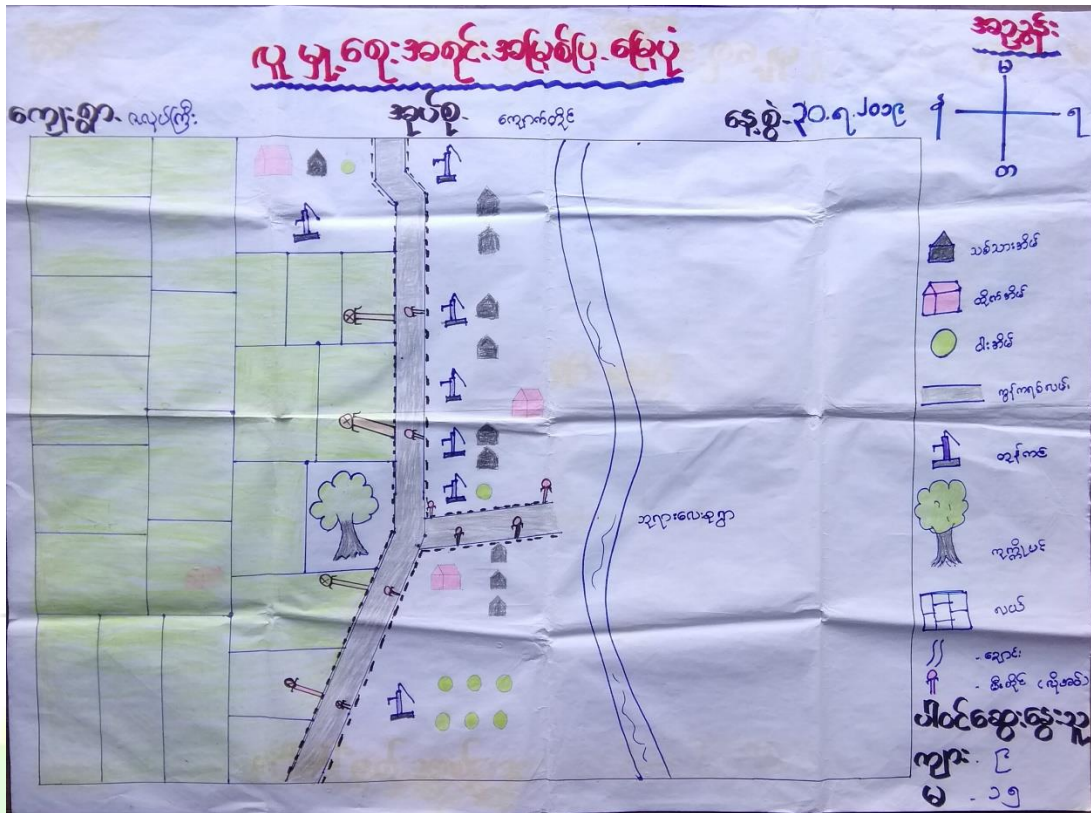 လူမှု့ရေးအရင်းအမြစ်ပြ.မြေပုံ
အညွှန်း
မ
န ရ
တ
ကျေးရွာ- ဇလုပ်ကြီး အုပ်စု- ကျောက်တိုင် နေ့စွဲ-၃၀.၇.၂၀၁၉
သစ်သားအိမ်
တိုက်အိမ်
ဝါးအိမ်
ကွန်ကရစ်လမ်း
တွန်ကင်
ကုက္ကိုပင်
လယ်
-ချောင်း
- မီးတိုင် (လိုအပ်)
ဘုရားလေးဆူရွာ
ပါဝင်ဆွေးနွေးသူ
ကျား- ၉
မ - ၁၅